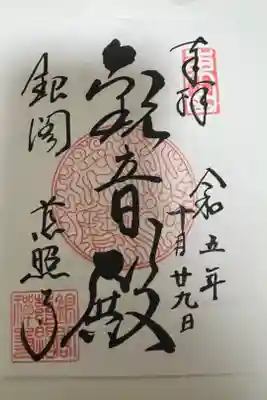 奉拝
令和五年
十月廿九日
観音殿
銀閣
慈照寺